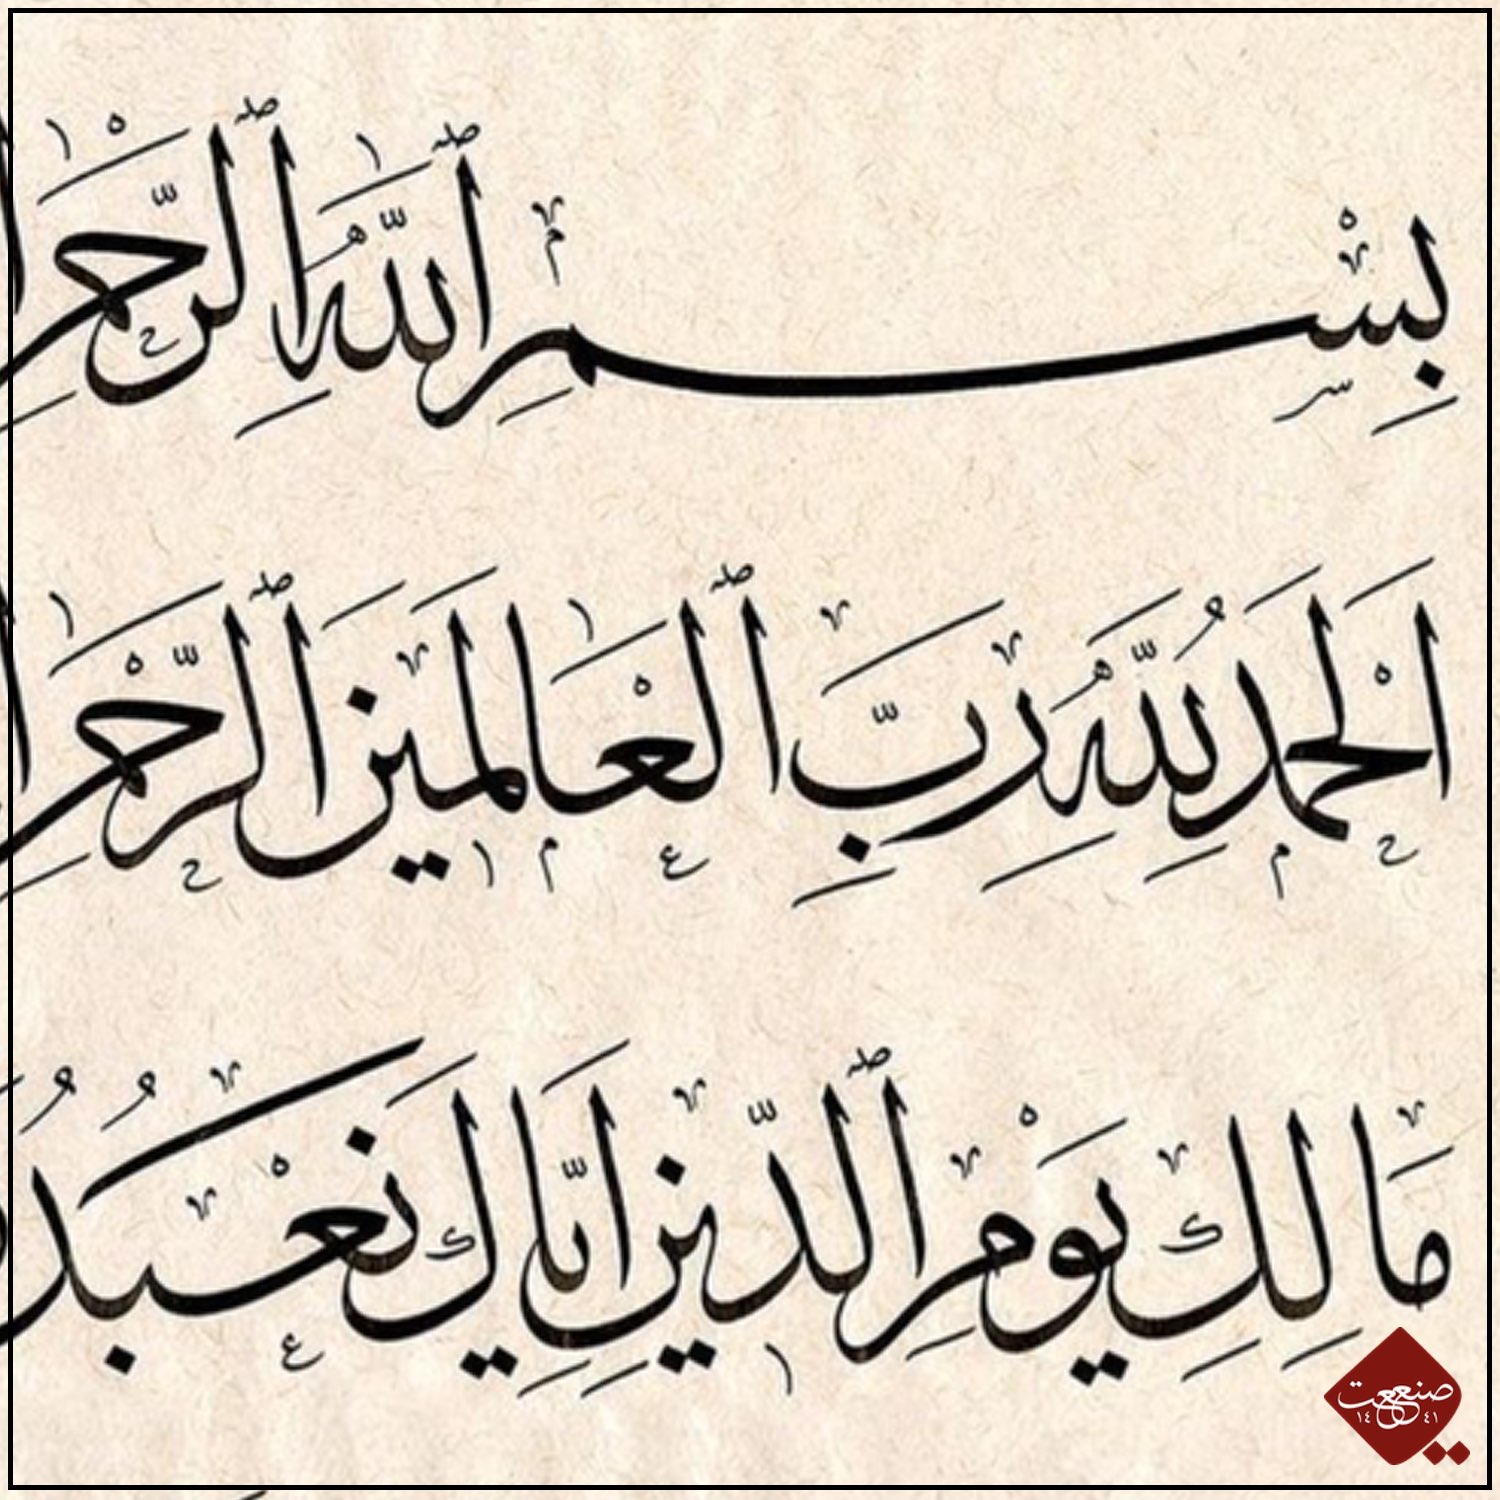 بِسْمِ ٱللَّهِ ٱلرَّحْمـ
اَلْحَمْدُ لِلَّهِ رَبِّ ٱلْعَالَمِينَ ٱلرَّحْمـ
مَالِكِ يَوْمِ ٱلدِّينِ اِيَّاكَ نَعْبُدُ
صنعت
١٤٤١